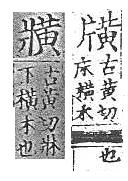 古黄切
床横木
也
古黄切牀
下横木也